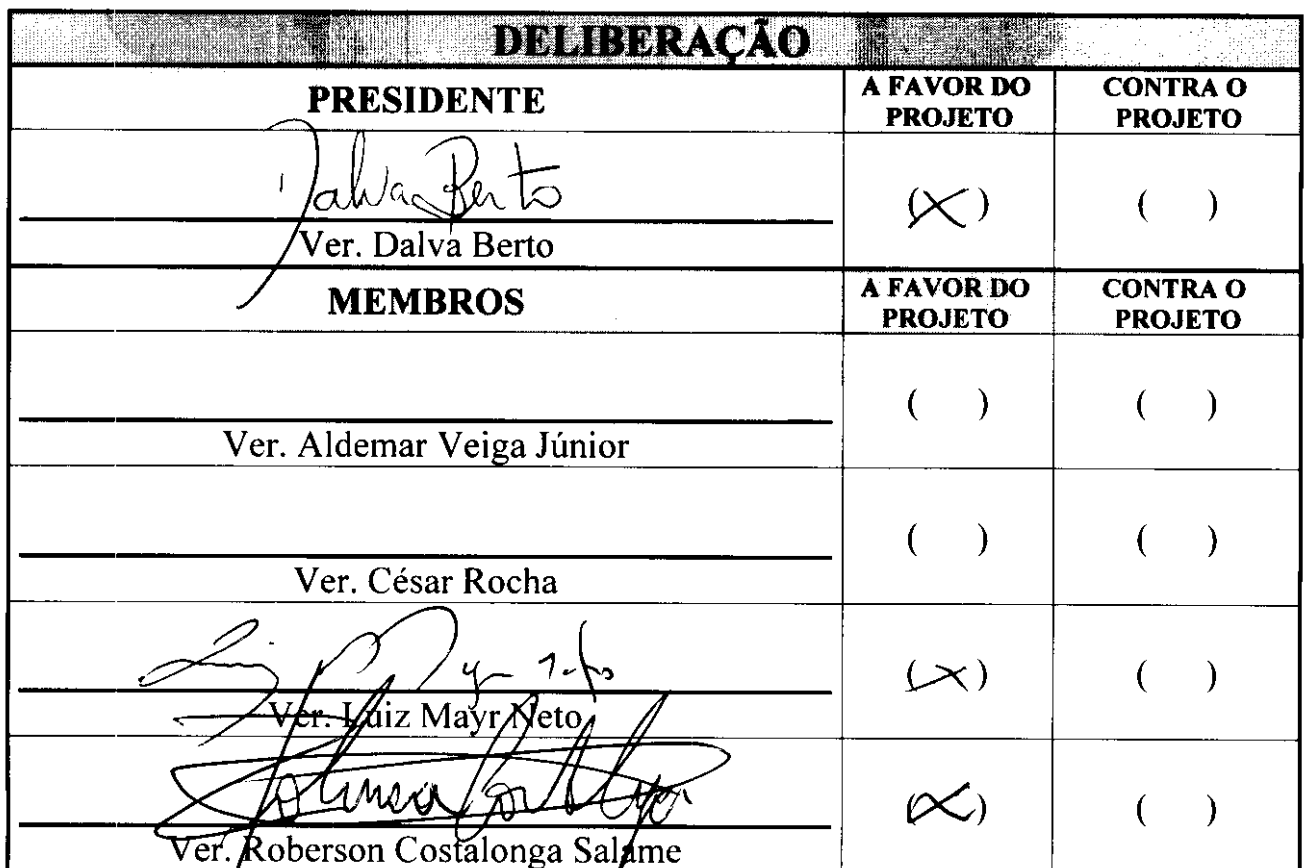 DELIBERAÇÃO
PRESIDENTE
A FAVOR DO PROJETO
CONTRA O PROJETO
Dalva Berto
(X)
( )
Ver. Dalva Berto
MEMBROS
A FAVOR DO PROJETO
CONTRA O PROJETO
( )
( )
Ver. Aldemar Veiga Júnior
( )
( )
Ver. César Rocha
(X)
( )
Ver. Luiz Mayr Neto
(X)
( )
Ver. Roberson Costalonga Salame